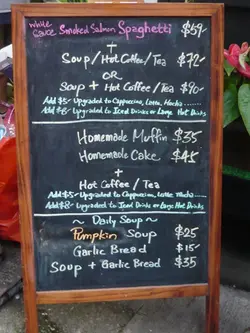 White Sauce Smoked Salmon Spaghetti $59-
+
Soup/Hot Coffee/Tea $72-
OR
Soup + Hot Coffee/Tea $90-
Add $5- Upgraded to Cappuccino, Latte, Mocha........
Add $8- Upgraded to Iced Drinks or Large Hot Drinks
Homemade Muffin $35
Homemade Cake $45
+
Hot Coffee/Tea
Add $5- Upgraded to Cappuccino, Latte, Mocha.....
Add $8- Upgraded to Iced Drinks or Large Hot Drinks
~ Daily Soup ~
Pumpkin Soup $25
Garlic Bread $15-
Soup + Garlic Bread $35